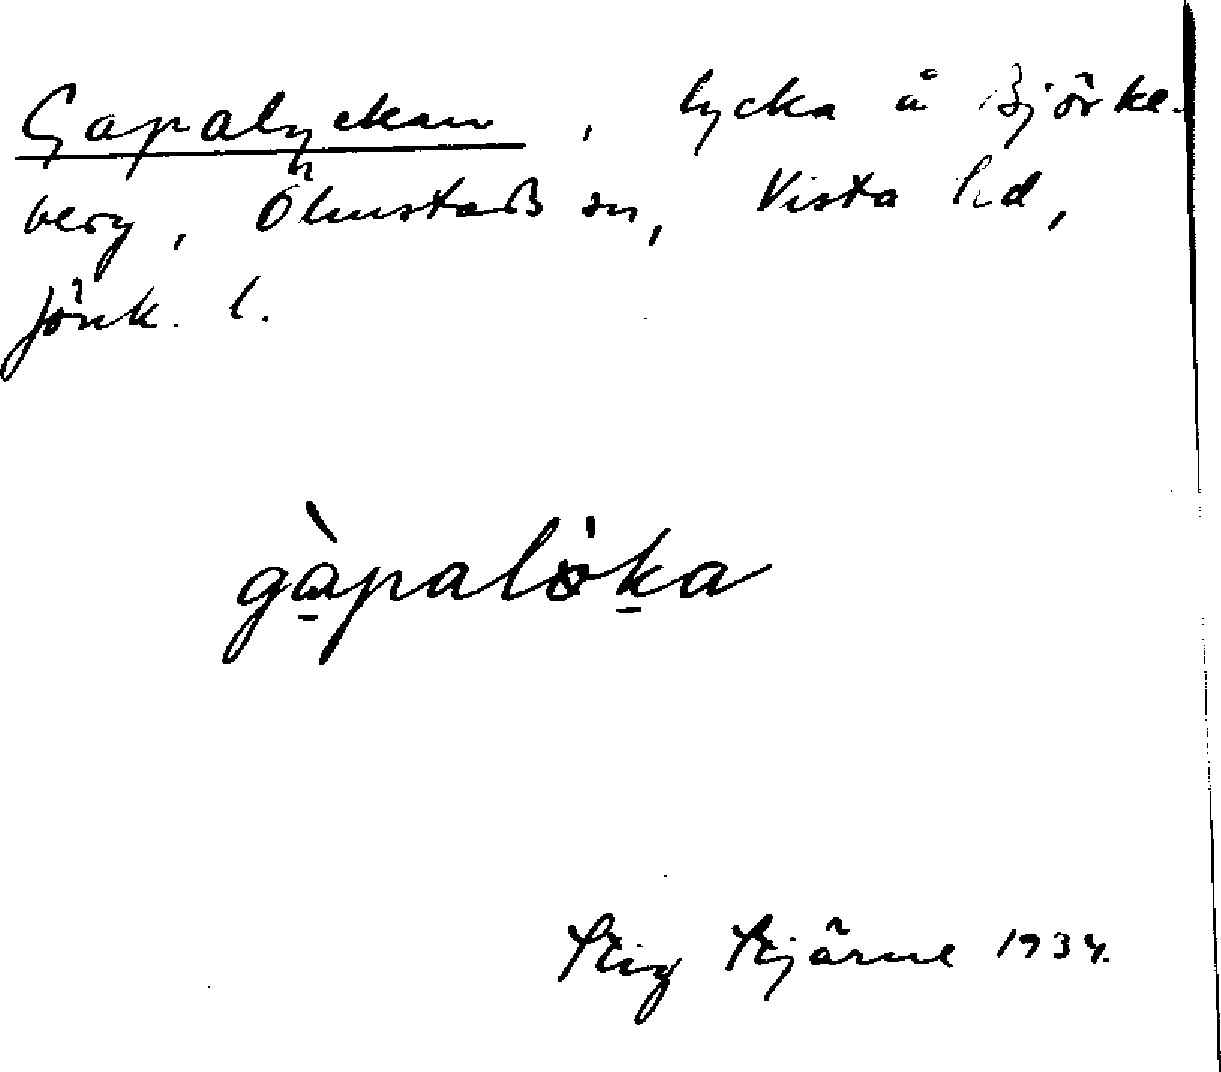 Gapalyckan, lycka å Björke-
berg, Ölmstads sn, Vista hd,
Jönk. l.
gàpalö̀ka
Stig Stjärne 1934.